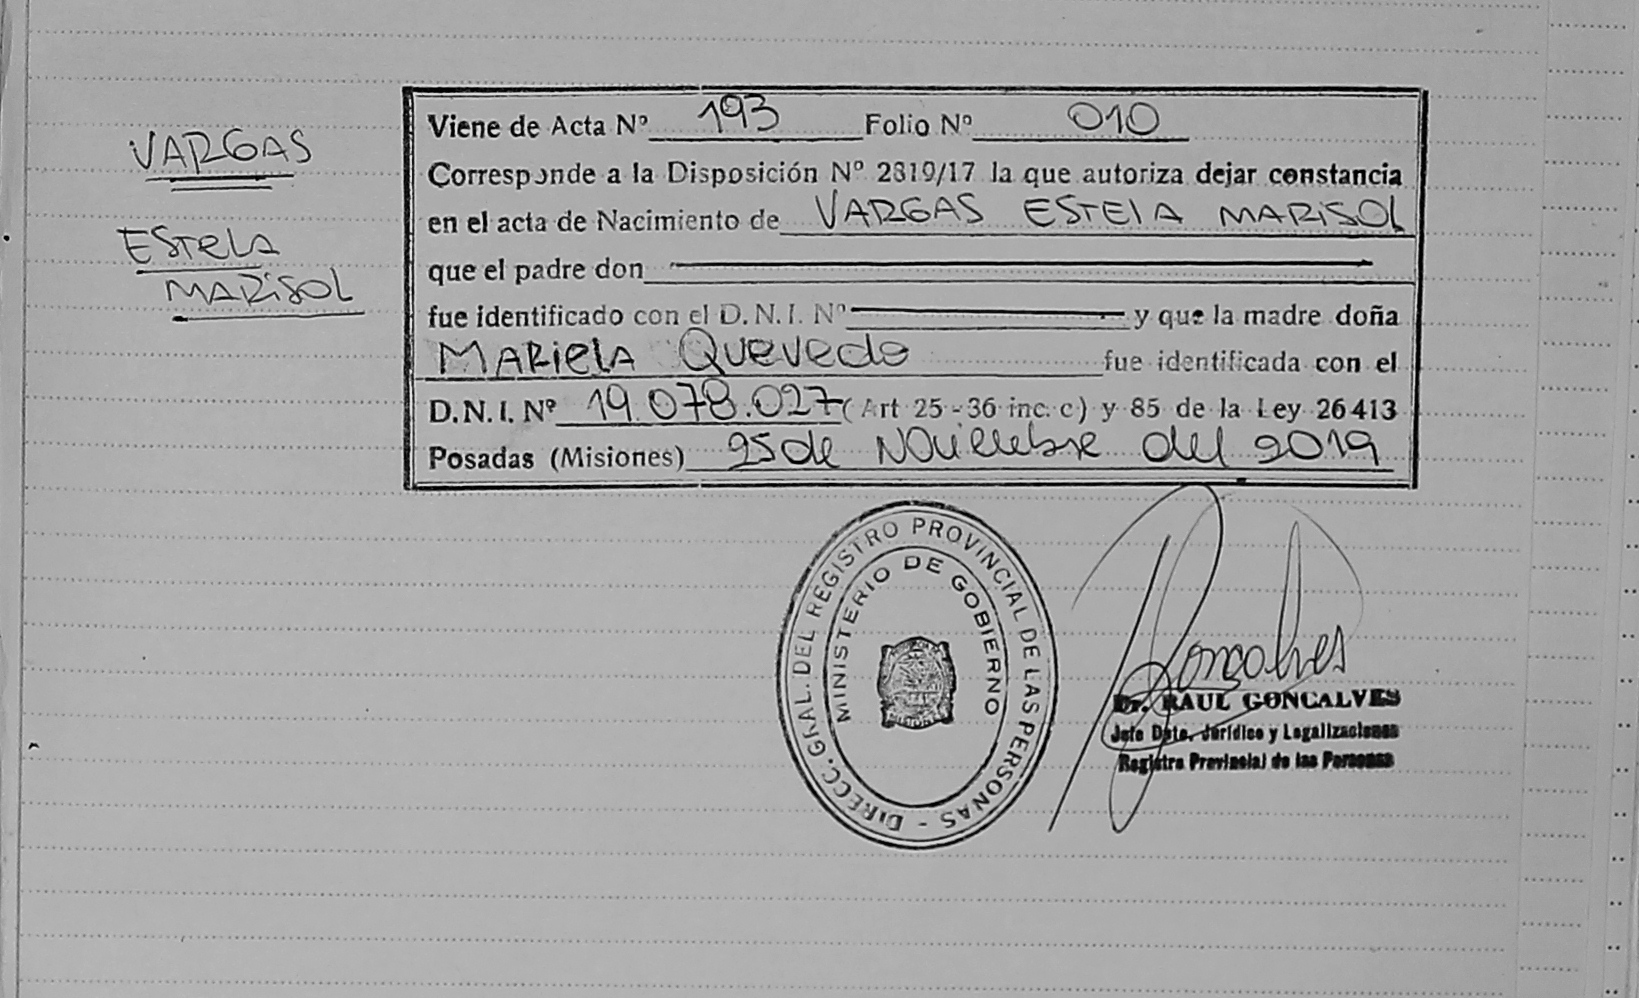 VARGAS
ESTELA
MARISOL
Viene de Acta Nº 193 Folio Nº 010
Corresponde a la Disposición Nº 2819/17 la que autoriza dejar constancia
en el acta de Nacimiento de VARGAS ESTELA MARISOL
que el padre don
fue identificado con el D.N.I. Nº y que la madre doña
MARIELA QUEVEDO fue identificada con el
D.N.I. Nº 19.078.027 (Art 25-36 inc. c) y 85 de la Ley 26413
Posadas (Misiones) 25 de Noviembre del 2019
DIRECC. GRAL. DEL REGISTRO PROVINCIAL DE LAS PERSONAS -
MINISTERIO DE GOBIERNO
Goncalves
Dr. RAUL GONCALVES
Jefe Dpto. Jurídico y Legalizaciones
Registro Provincial de las Personas